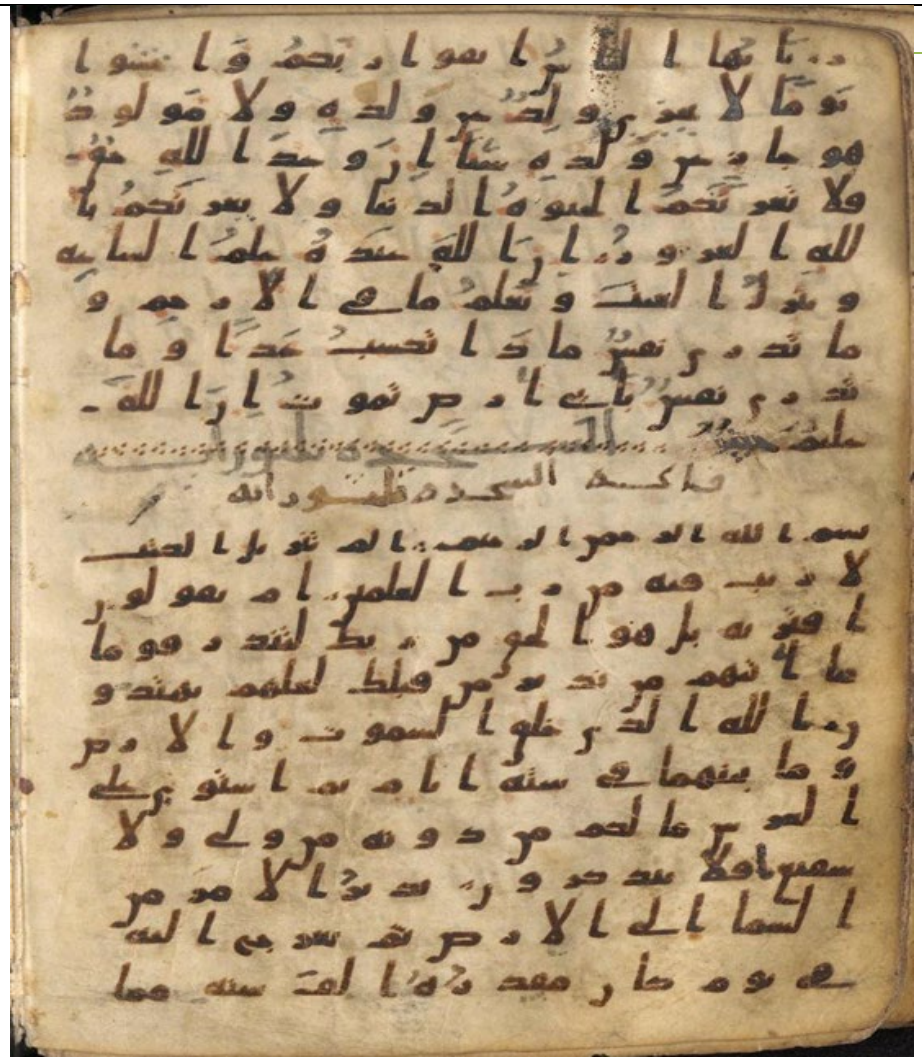 ر يايها الناس اتقوا ربكم واخشوا
يوما لا يجزي والد عن ولده ولا مولود
هو جاز عن والده شيا ان وعد الله حق
فلا تغرنكم الحيوه الدنيا ولا يغرنكم با
لله الغرور ان الله عنده علم الساعه
وينزل الغيث ويعلم ما في الارحم و
ما تدري نفس ماذا تكسب غدا وما
تدري نفس باي ارض تموت ان الله
عليم خبير
السجده ثلثون ايه
بسم الله الرحمن الرحيم الم تنزيل الكتب
لا ريب فيه من رب العلمين ام يقولون
افتريه بل هو الحق من ربك لتنذر قوما
ما اتيهم من نذير من قبلك لعلهم يهتدو
ن الله الذي خلق السموت والارض
وما بينهما في سته ايام ثم استوي علي
العرش ما لكم من دونه من ولي ولا
شفيع افلا تتذكرون يدبر الامر من
السما الي الارض ثم يعرج اليه
في يوم كان مقدره الف سنه مما